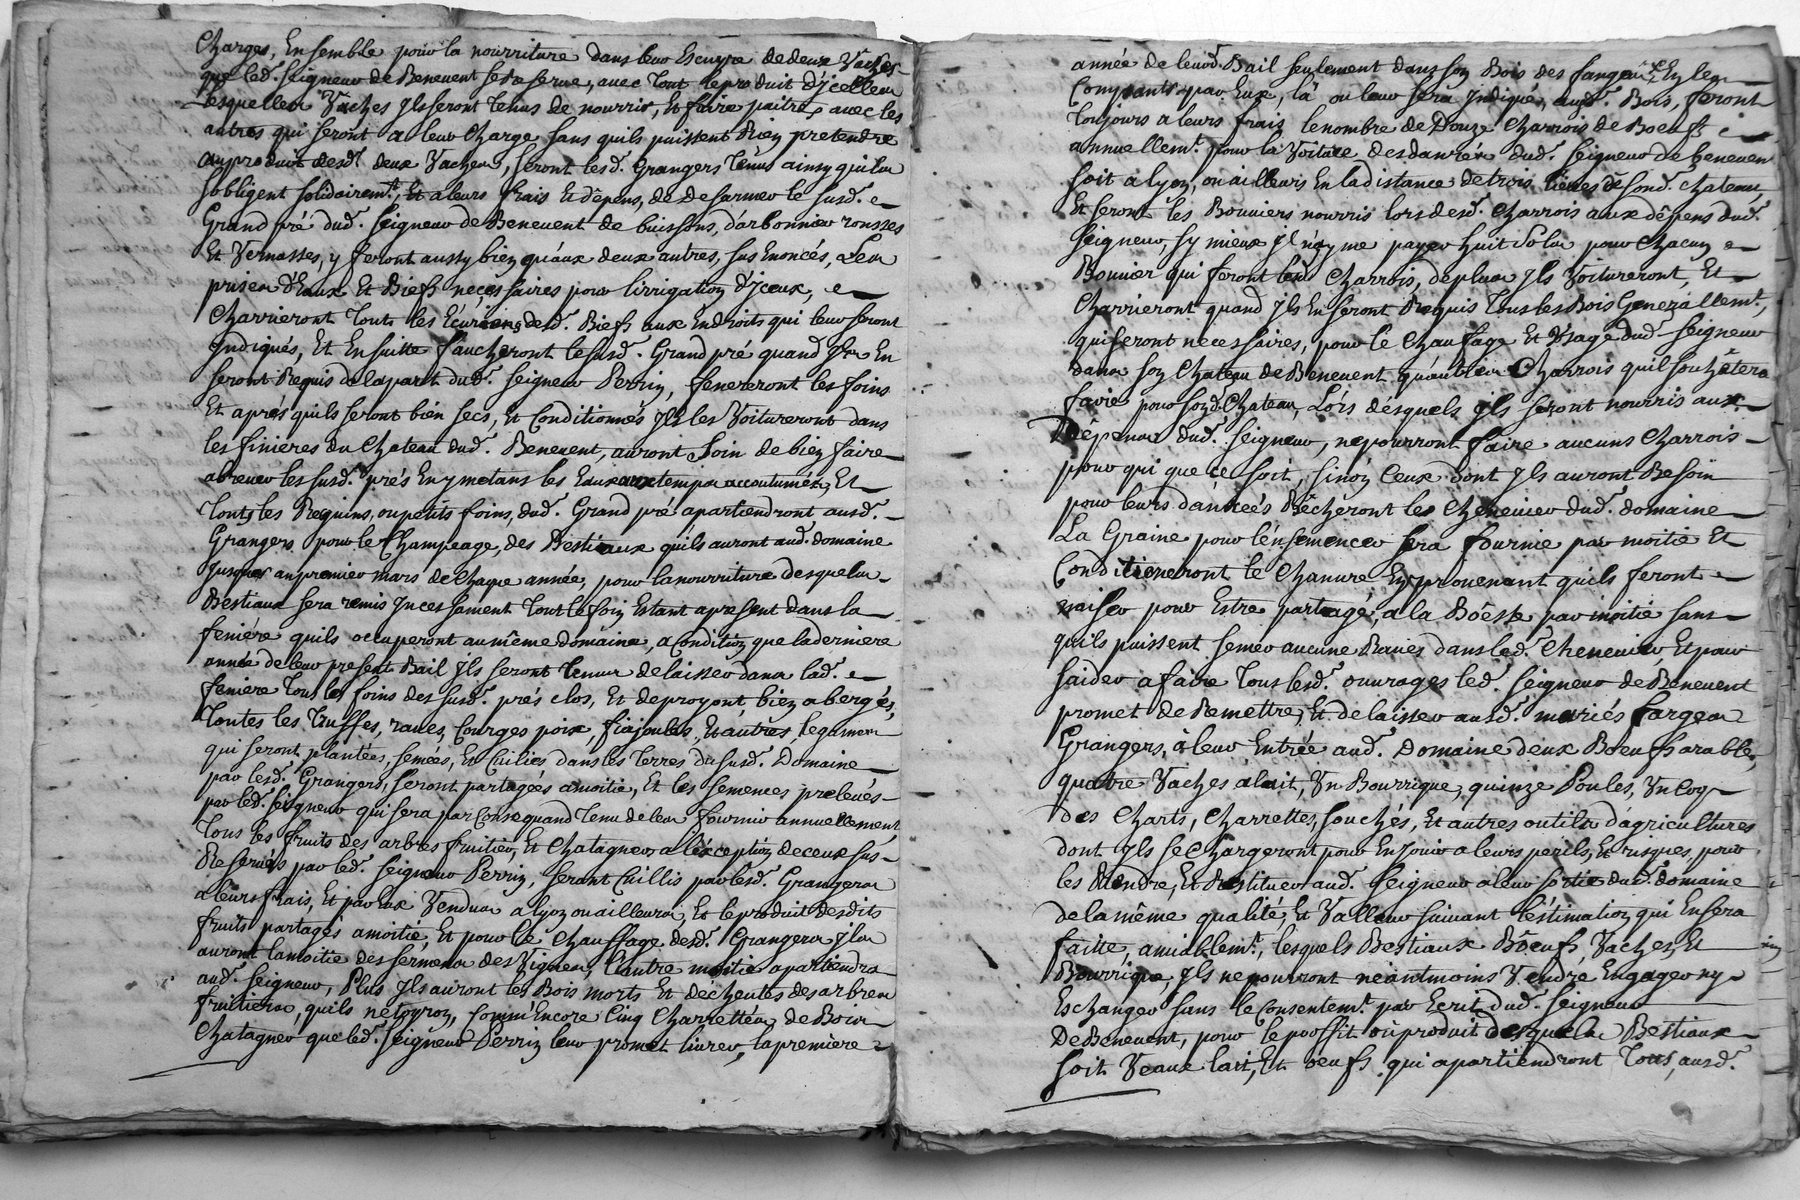 Charges, Ensemble pour la nourriture dans leur Escurye de deux Vaches
que led. Seigneur de Benevent se reserve, avec tout le produit d'jcelles
Lesquelles Vaches jls seront tenus de nourrir, et faire paitre avec les
autres qui seront a leur Charge sans quils puissent Rien pretendre
au produit desd. deux Vaches, seront lesd. Grangers tenus ainsy quils
sobligent solidairemt., et a leurs frais et dépens, de Desarmer le susd.
Grand pré dud. Seigneur de Benevent de buissons, darbonnier ronsses
Et Vernasses, y feront aussy bien qu'aux deux autres, sus Enoncés, Les
prises d'Eaux Et Biefs necessaires pour lirrigation d'jceux,
Charrieront touts les Ecurions desd. Biefs aux Endroits qui leur seront
Jndiqués, Et Ensuitte faucheront le susd. Grand pré quand jls En
seront Requis de la part dud. Seigneur Perrin, feneront les foins
Et aprés quils seront bien secs, et Conditionnés jls les Voitureront dans
les finieres du Chateau dud. Benevent, auront soin de bien faire
abreuver les susd. prés En y metans les Eaux aux temps accoutumés, Et
touts les Requins, ou petits foins, dud. Grand pré apartiendront ausd.
Grangers pour le Champeage, des Bestiaux quils auront aud. domaine
Jusques au premier mars de Chaque année, pour la nourriture desquels
Bestiaux sera remis Jncessament tout le foin Estant apresent dans la
feniére quils occuperont au même domaine, a Condition que la derniere
année de leur present Bail jls seront tenus de laisser dans lad.
feniere tous les foins des susd. prés clos, Et de proyont, bien abergés,
Toutes les truffes, raves, Courges poix, fiajoules, Et autres, legumes
qui seront plantées, semées, Et Cuilies dans les terres du susd. Domaine
par lesd. Grangers, seront partagées a moitié, Et les semences prelevés
par led. Seigneur qui sera par Consequand tenu de les fournir annuellement
Tous les fruits des arbres fruitier, Et Chatagners a l'éxception de ceux sus
Reservés par led. Seigneur Perrin, seront Cuillis par lesd. Grangers
a leurs frais, Et par eux Vendus a lyon ou ailleurs, Et le produit desdits
fruits partagés a moitié, Et pour le Chauffage desd. Grangers jls
auront la moitié des sermens des Vignes, l'autre moitié apartiendra
aud. Seigneur, Plus jls auront les Bois morts Et déchentes des arbres
fruitiers, quils netoyron, Comm'Encore Cinq Charrettées de Bois
Chatagner que led. Seigneur Perrin leur promet livrer, la premiere
année de leurd. Bail seulement dans son Bois des fangeas En les
Coupants par Eux, là ou leur sera Jndiqué, aud. Bois, feront
toujours a leurs frais le nombre de Douze Charrois de Boeufs
annuellemt. pour la Voiture des danrées dud. Seigneur de benevent
soit a lyon, ou ailleurs En la distance de trois lieües de sond. chateau,
Et seront les Bouviers nourris lors desd. Charrois aux dépens dud.
Seigneur, sy mieux jl n'ayme payer huit Sols pour chacun
Bouvier qui feront lesd. Charrois, de plus jls Voitureront, Et
Charrieront quand jls En seront Requis tous les Bois Generallemt.,
qui seront necessaires, pour le Chaufage Et Usage dud. Seigneur
dans son Chateau de Benevent, qu'autres Charrois quil souhétera
faire pour sond. Chateau, Lors désquels jls seront nourris aux
Dépens dud. Seigneur, ne pourront faire aucuns Charrois
pour qui que ce soit, sinon Ceux dont jls auront Besoin
pour leurs danrées Bêcheront le Chenevier dud. domaine
La Graine pour l'énsemencer sera fournie par moitié Et
Conditioneront le Chanvre En provenant quils feront
naiser pour Estre partagé, a la Bôeste par moitié sans
quils puissent semer aucune Raves dans led. Chenevier, Et pour
saider a faire tous lesd. ouvrages led. Seigneur de Benevent
promet de Remettre, Et de laisser ausd. mariés fargeas
Grangers, a leur Entrée aud. Domaine deux Boeufs arables,
quatre Vaches a lait, Un Bourrique, quinze Poules, Un Coq
des Charts, Charrettes, souchés, Et autres outils d'agricultures
dont jls se Chargeront pour En jouir a leurs perils, Et risques, pour
les Rendre, Et Restituer aud. Seigneur a leur sortie dud. domaine
de la même qualité, Et Valleur suivant l'éstimation qui En sera
faitte, amiablemt., lesquels Bestiaux Bôeufs, Vaches, Et
Bourrique, jls ne pourront neantmoins Vendre Engager ny
Eschanger sans le Consentemt. par Ecrit dud. Seigneur
De Benevent, pour le proffit ou produit desquels Bestiaux
soit Veaux lait, Et oeufs qui apartiendront Tous, ausd.